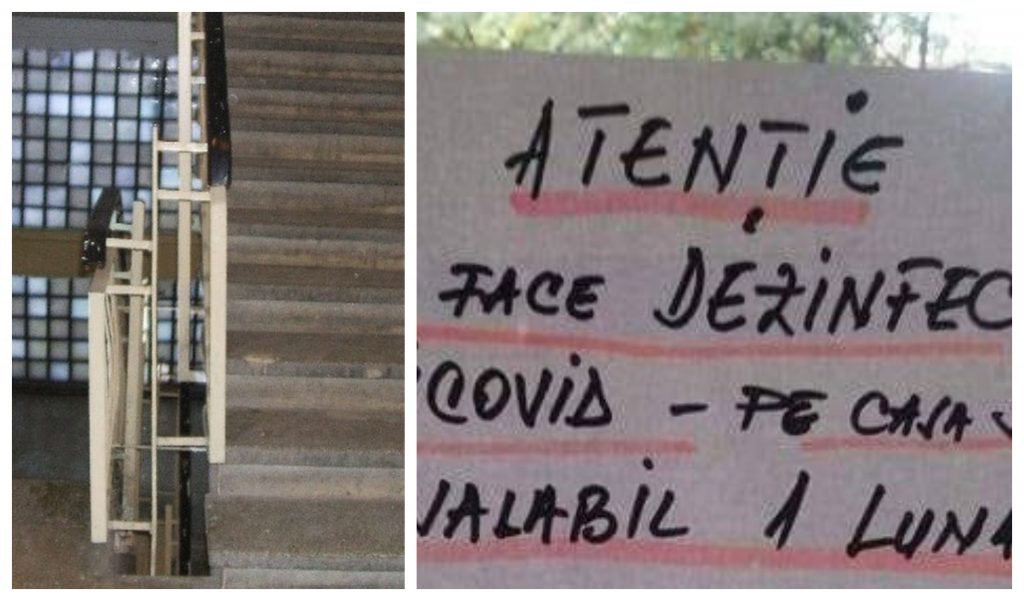 ATENȚIE
FACE DEZINFEC
COVID - PE CASA
VALABIL 1 LUNA